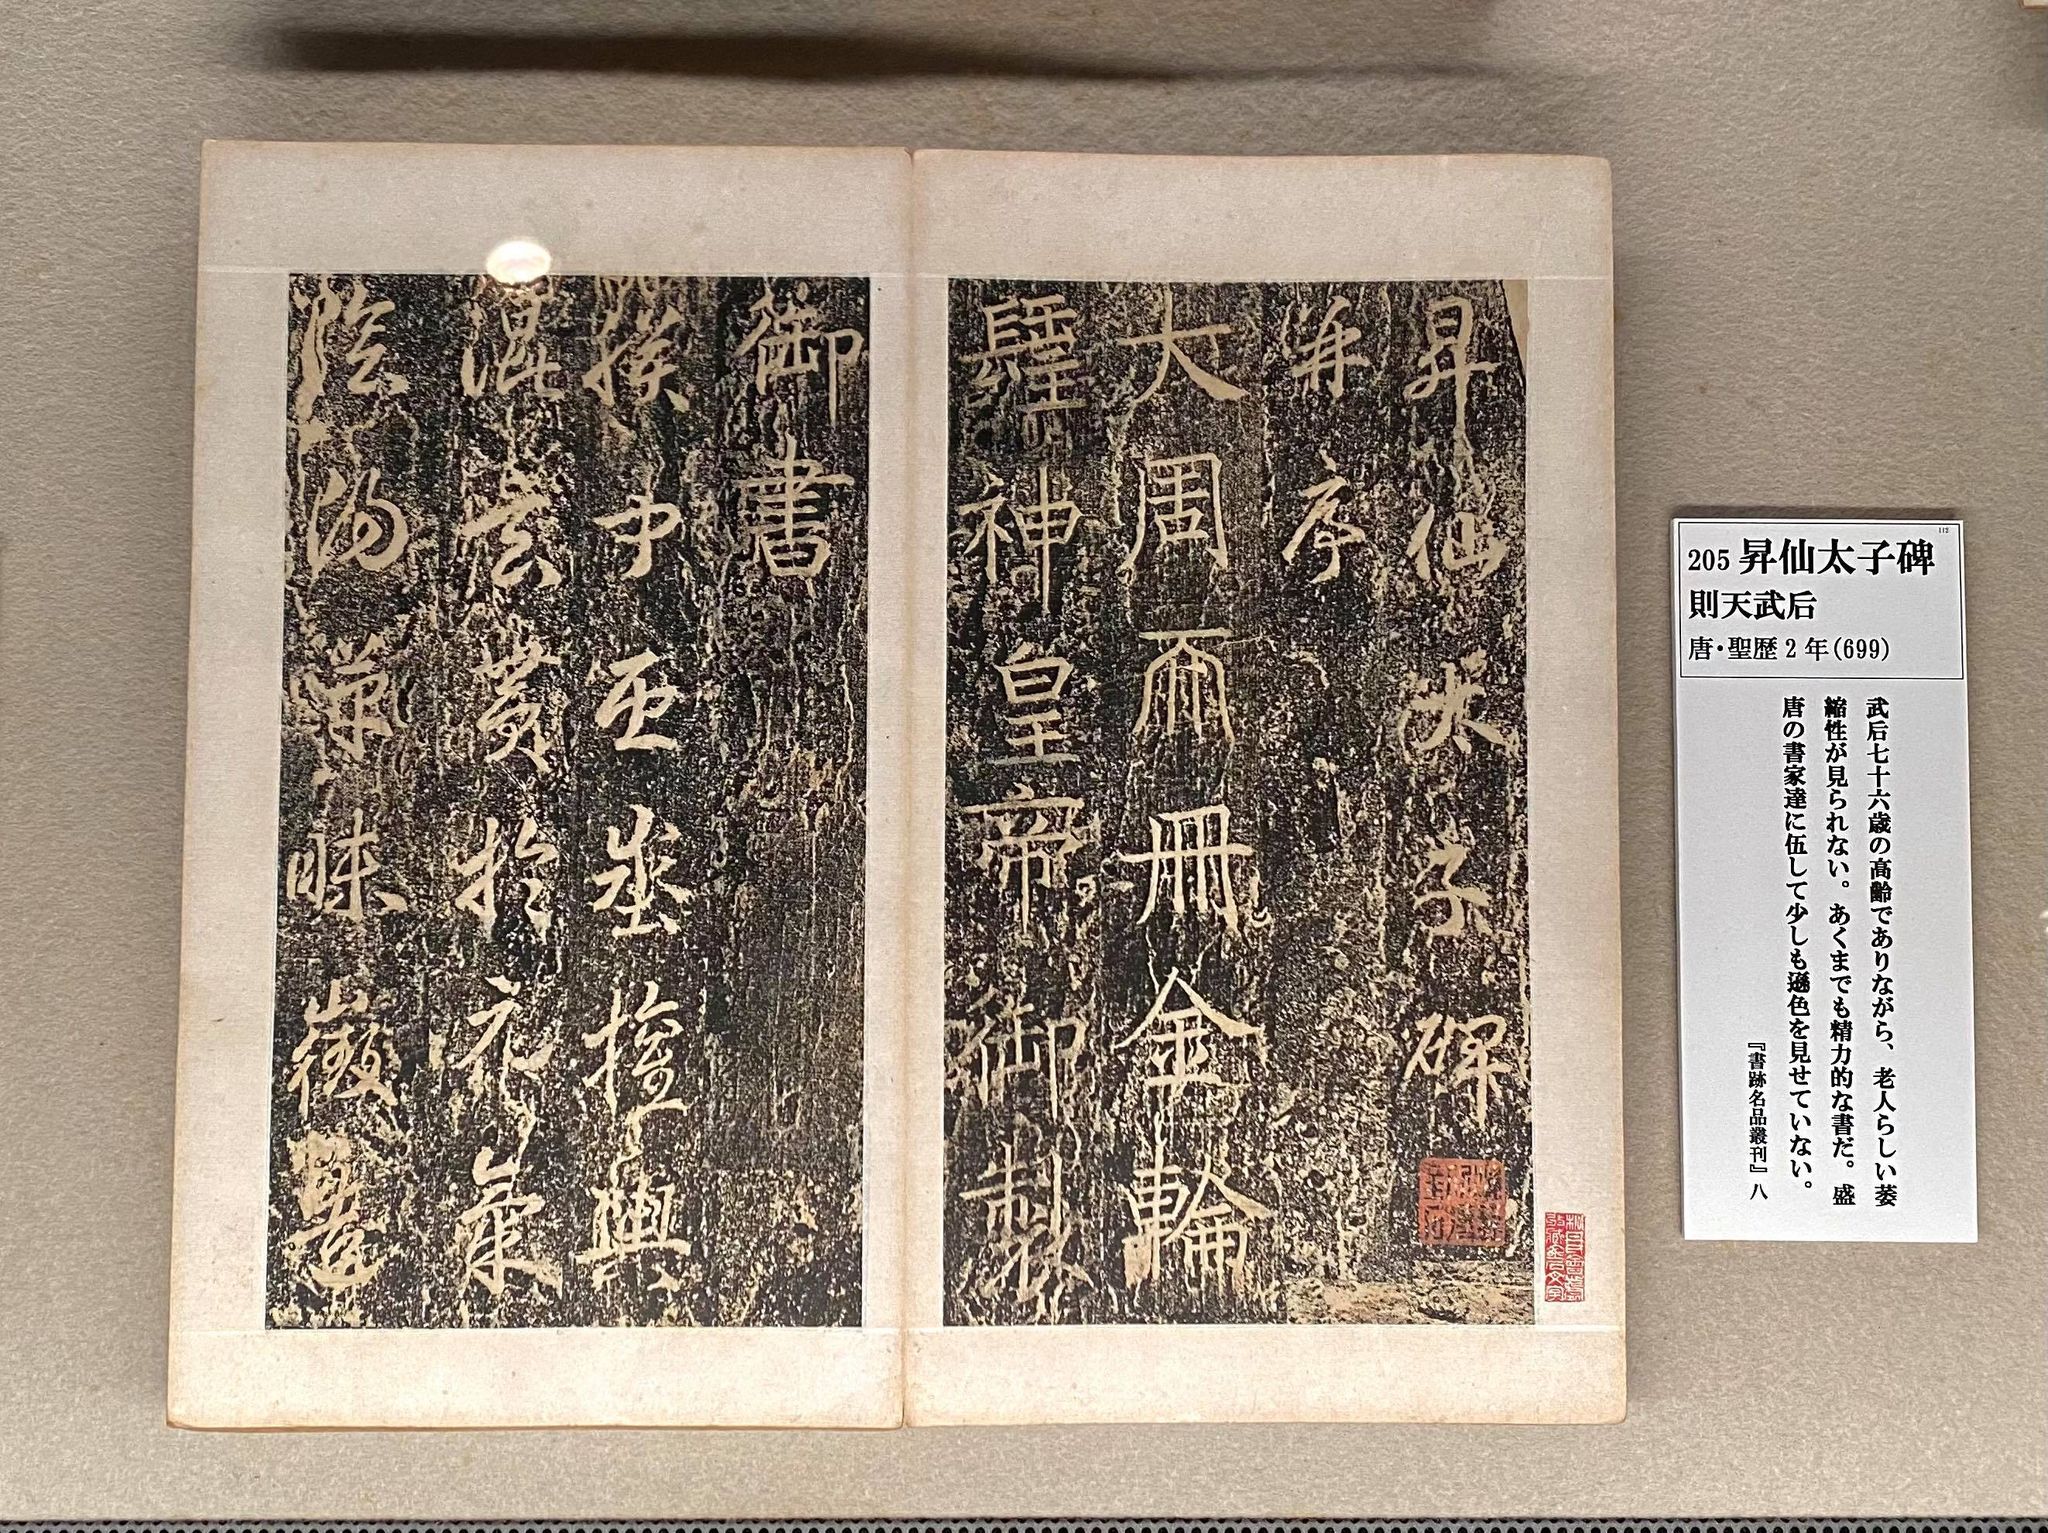 昇仙太子碑
并序
大周𠀑冊金輪
𨲢神皇帝御製
御書
朕聞𠀑埊權輿
混玄黃於元氣
陰陽草昧徵造
112
205 昇仙太子碑
則天武后
唐・聖歴2年(699)
武后七十六歳の高齢でありながら、老人らしい萎
縮性が見られない。あくまでも精力的な書だ。盛
唐の書家達に伍して少しも遜色を見せていない。
『書跡名品叢刊』八